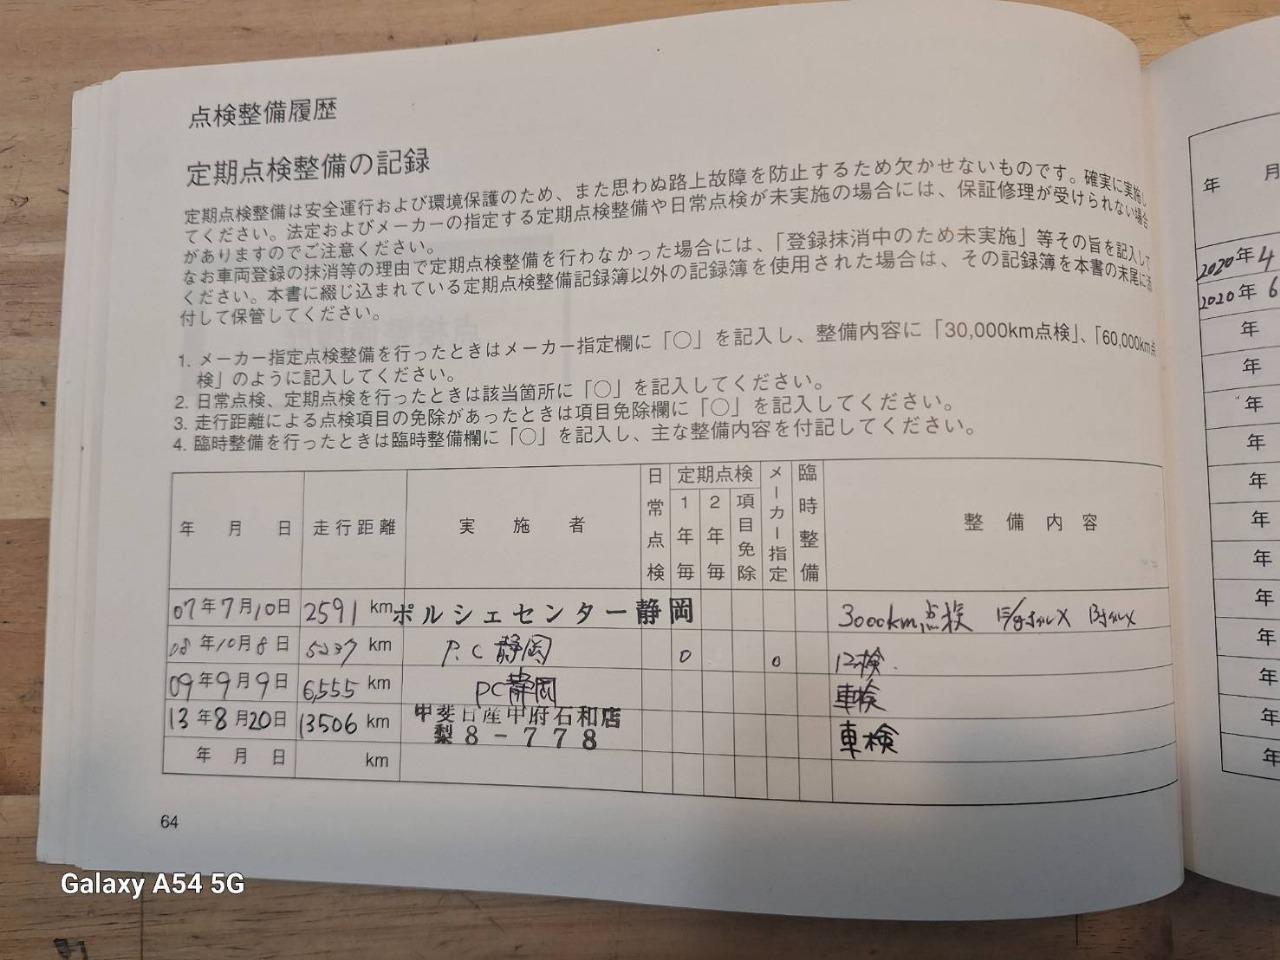 点検整備履歴
定期点検整備の記録
定期点検整備は安全運行および環境保護のため、また思わぬ路上故障を防止するため欠かせないものです。確実に実施し
てください。法定およびメーカーの指定する定期点検整備や日常点検が未実施の場合には、保証修理が受けられない場合
がありますのでご注意ください。
なお車両登録の抹消等の理由で定期点検整備を行わなかった場合には、「登録抹消中のため未実施」等その旨を記入して
ください。本書に綴じ込まれている定期点検整備記録簿以外の記録簿を使用された場合は、その記録簿を本書の末尾に添
付して保管してください。
1. メーカー指定点検整備を行ったときはメーカー指定欄に「〇」を記入し、整備内容に「30,000km点検」、「60,000km点
検」のように記入してください。
2. 日常点検、定期点検を行ったときは該当箇所に「〇」を記入してください。
3. 走行距離による点検項目の免除があったときは項目免除欄に「〇」を記入してください。
4. 臨時整備を行ったときは臨時整備欄に「〇」を記入し、主な整備内容を付記してください。
年 月 日 走行距離 実施者 日常点検 定期点検 1年毎 2年毎 項目免除 メーカー指定 臨時整備 整備内容
07年7月10日 2591 km ポルシェセンター静岡 3000km点検
08年10月8日 5237 km P.C 静岡 〇 〇 12検.
09年9月9日 6,555 km PC静岡 車検
13年8月20日 13506 km 甲斐日産甲府石和店 車検
梨8-778
年 月 日 km
64
年 月
2020年4
2020年6
年
年
年
年
年
年
年
年
年
年
年
年
Galaxy A54 5G